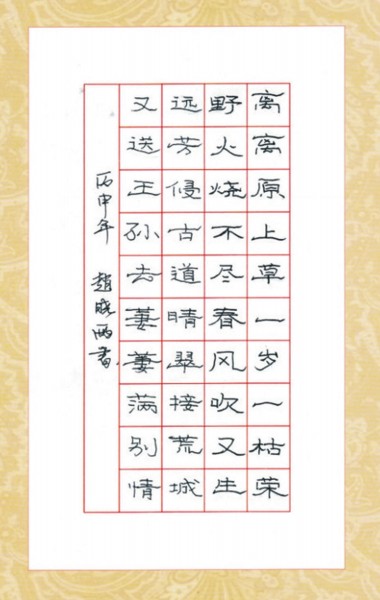 离离原上草一岁一枯荣
野火烧不尽春风吹又生
远芳侵古道晴翠接荒城
又送王孙去萋萋满别情
丙申年 赵晓雨书